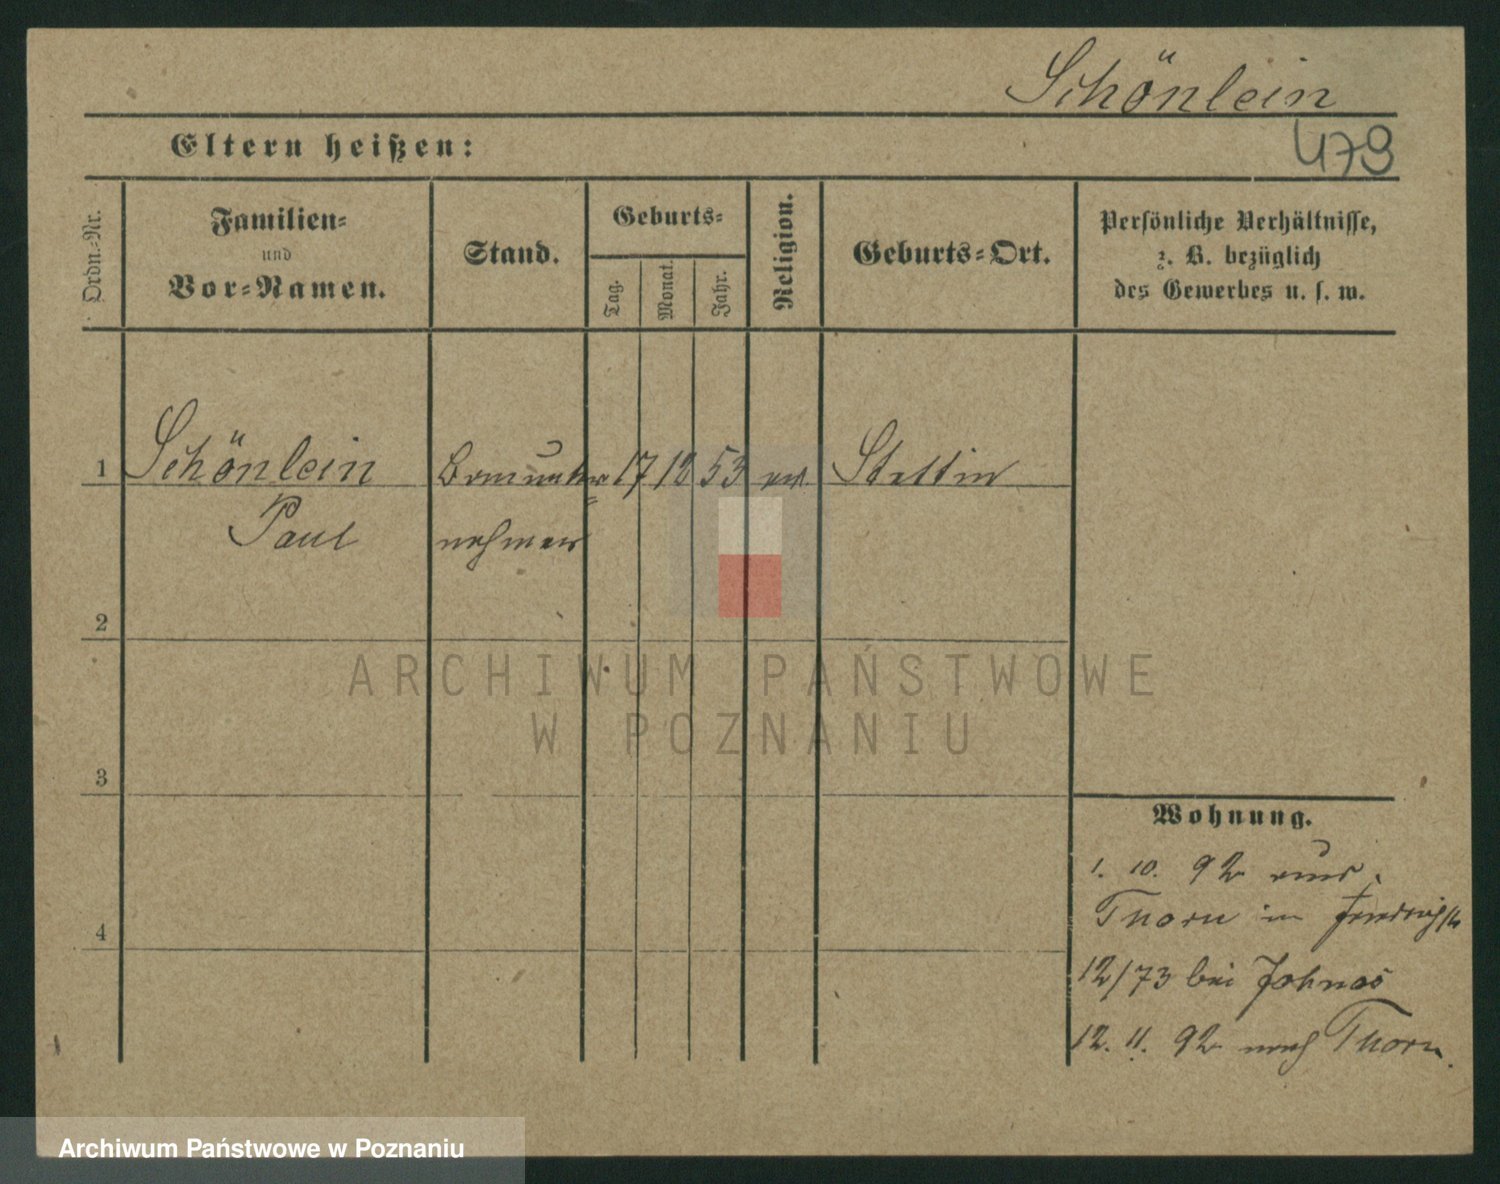 Schönlein
Eltern heißen:
479
Ordn.-Nr.
Familien-
und
Vor-Namen.
Stand.
Geburts-
Tag.
Monat.
Jahr.
Religion.
Geburts-Ort.
Persönliche Verhältnisse,
z. B. bezüglich
des Gewerbes u. s. w.
1 Schönlein Bauunter= 17 12 53 ev. Stettin
Paul nehmer
2
ARCHIWUM PAŃSTWOWE
W POZNANIU
3
Wohnung.
1. 10. 92 aus
Thorn in Friedrichstr
4
12/73 bei Johnas
12. 11. 92 nach Thorn.
Archiwum Państwowe w Poznaniu